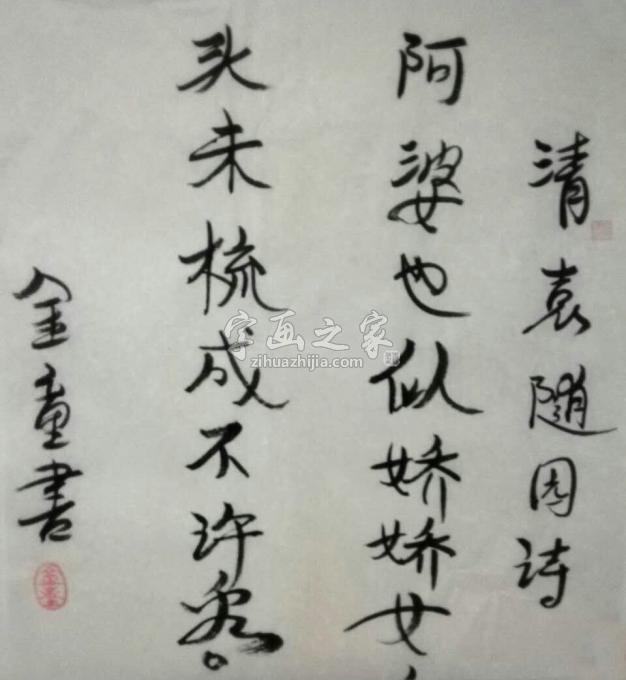 清袁随园诗
阿婆也似娇娇女、
头未梳成不许看。
金童書
字画之家
zihuazhijia.com